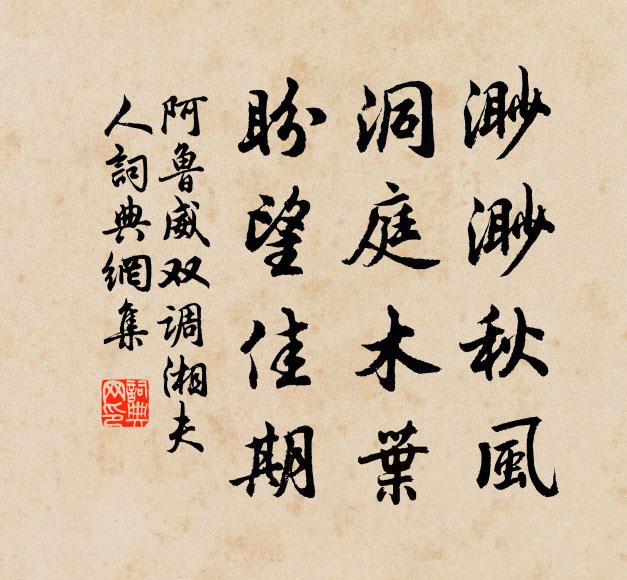 渺渺秋風
洞庭木葉
盼望佳期
阿鲁威双调湘夫
人詞典網集
詞典
网印